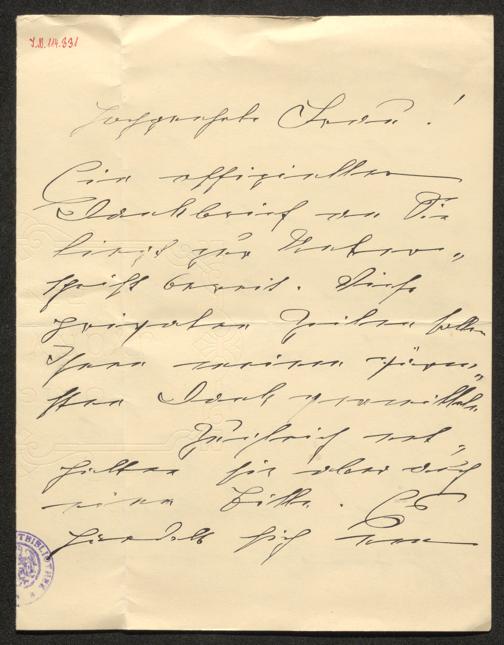 I.N. 114.331
Hochgeehrte Frau!
Ein offizieller
Dankbrief an Sie
liegt zur Unter-
schrift bereit. Diese
privaten Zeilen sollen
Ihnen meinen
sten Dank vermitteln.
Zugleich ent-
halten sie aber auch
eine Bitte. Es
handelt sich um